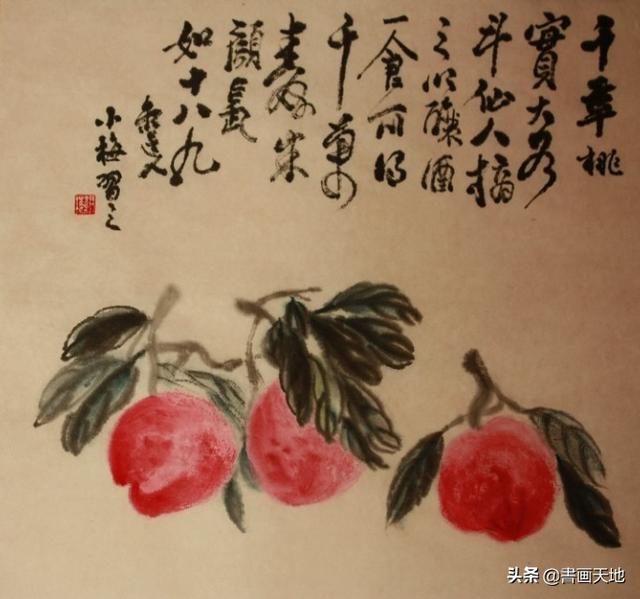 千年桃
實大如
斗仙人摘
之以釀酒
一食可得
千萬
壽朱
顏長
如十八九
小梅習之
头条 @書画天地